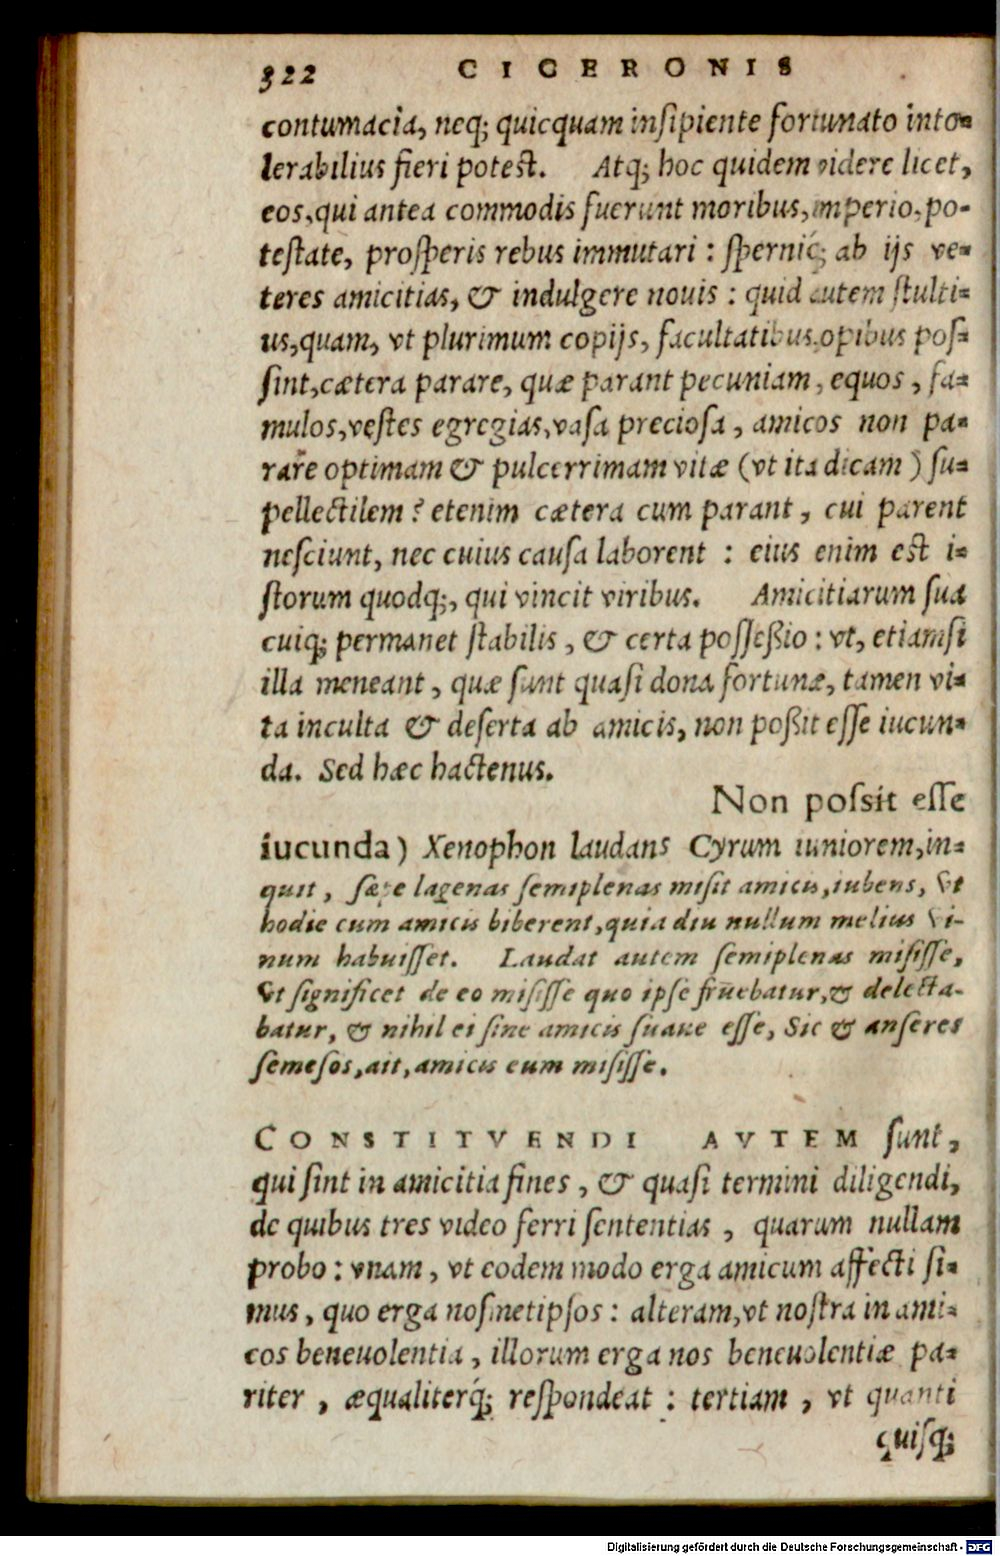 322 CICERONIS
contumacia, neq; quicquam insipiente fortunato into=
lerabilius fieri potest. Atq; hoc quidem videre licet,
eos, qui antea commodis fuerunt moribus, imperio, po-
testate, prosperis rebus immutari: sperniq́; ab ijs ve=
teres amicitias, & indulgere nouis: quid autem stulti=
us, quam, vt plurimum copijs, facultatibus, opibus pos=
sint, cætera parare, quæ parant pecuniam, equos, fa=
mulos, vestes egregias, vasa preciosa, amicos non pa=
rare optimam & pulcerrimam vitæ (vt ita dicam) su=
pellectilem? etenim cætera cum parant, cui parent
nesciunt, nec cuius causa laborent: eius enim est i=
storum quodq;, qui vincit viribus. Amicitiarum sua
cuiq; permanet stabilis, & certa possessio: vt, etiamsi
illa meneant, quæ sunt quasi dona fortunæ, tamen vi=
ta inculta & deserta ab amicis, non possit esse iucun=
da. Sed hæc hactenus.
Non possit esse
iucunda) Xenophon laudans Cyrum iuniorem, in=
quit, sæpe lagenas semiplenas misit amicis, iubens, vt
hodie cum amicis biberent, quia diu nullum melius vi-
num habuisset. Laudat autem semiplenas misisse,
vt significet de eo misisse quo ipse fruebatur, & delecta-
batur, & nihil ei sine amicis suaue esse, Sic & anseres
semesos, ait, amicis eum misisse.
CONSTITVENDI AVTEM sunt,
qui sint in amicitia fines, & quasi termini diligendi,
de quibus tres video ferri sententias, quarum nullam
probo: vnam, vt eodem modo erga amicum affecti si=
mus, quo erga nosmetipsos: alteram, vt nostra in ami=
cos beneuolentia, illorum erga nos beneuolentiæ pa=
riter, æqualiterq́; respondeat: tertiam, vt quanti
quisq;
Digitalisierung gefördert durch die Deutsche Forschungsgemeinschaft - DFG